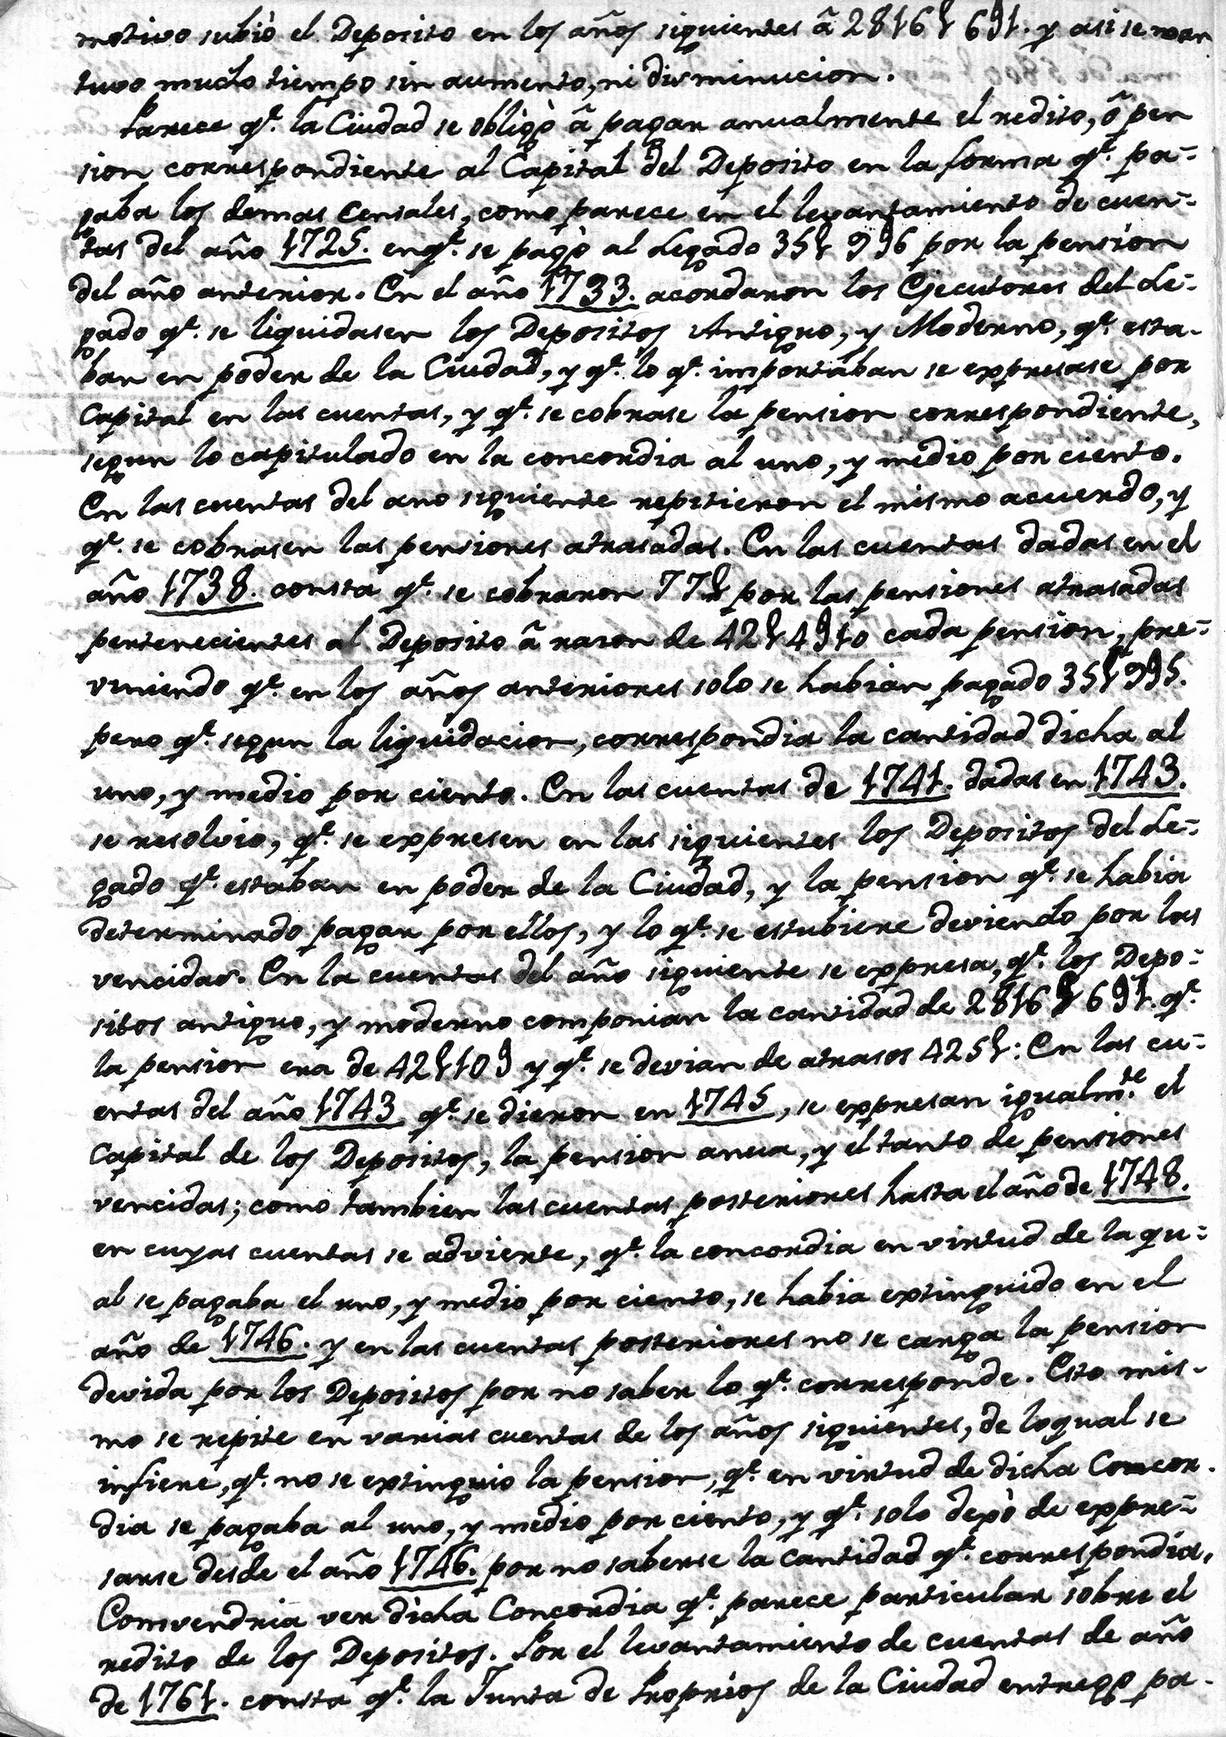 motivo subiò el Deposito en los años siguientes â 2816$691. y asi se man
tuvo mucho tiempo sin aumento, ni disminucion.
Parece q.e la Ciudad se obligò â pagar anualmente el redito, ô pen
sion correspondiente al Capital del Deposito en la forma q.e pa-
gaba los demas Censales, como parece en el levantamiento de cuen-
tas del año 1725. en q.e se pagò al Legado 35$996 por la pension
del año anterior. En el año 1733. acordaron los Ejecutores del Le-
gado q.e se liquidasen los Depositos Antiguo, y Moderno, q.e esta-
ban en poder de la Ciudad, y q.e lo q.e importaban se expresase por
Capital en las cuentas, y q.e se cobrase la pension correspondiente,
segun lo capitulado en la concordia al uno, y medio por ciento.
En las cuentas del ano siguiente repitieron el mismo acuerdo, y
q.e se cobrasen las pensiones atrasadas. En las cuentas dadas en el
año 1738. consta q.e se cobraron 77$ por las pensiones atrasadas
pertenecientes al Deposito â razon de 42$4910 cada pension, pre-
viniendo q.e en los años anteriores solo se habian pagado 35$995.
pero q.e segun la liquidacion, correspondia la cantidad dicha al
uno, y medio por ciento. En las cuentas de 1741. dadas en 1743.
se resolvio, q.e se expresen en las siguientes los Depositos del Le-
gado q.e estaban en poder de la Ciudad, y la pension q.e se habia
determinado pagar por ellos, y lo q.e se estubiere deviendo por las
vencidas. En la cuentas del año siguiente se expresa, q.e los Depo-
sitos antiguo, y moderno componian la cantidad de 2816$691. q.e
la pension era de 42$109 y q.e se devian de atrasos 425$: En las cu-
entas del año 1743 q.e se dieron en 1745, se expresan igualm.te el
Capital de los Depositos, la pension anua, y el tanto de pensiones
vencidas; como tambien las cuentas posteriores hasta el año de 1748.
en cuyas cuentas se advierte, q.e la concordia en virtud de la qu-
al se pagaba el uno, y medio por ciento, se habia extinguido en el
año de 1746. y en las cuentas posteriores no se carga la pension
devida por los Depositos por no saber lo q.e corresponde. Esto mis-
mo se repite en varias cuentas de los años siguientes, de loqual se
infiere, q.e no se extinguio la pension, q.e en virtud de dicha Concor.
dia se pagaba al uno, y medio por ciento, y q.e solo dexò de expre-
sarse desde el año 1746. por no saberse la cantidad q.e correspondia,
Comvendria ver dicha Concordia q.e parece particular sobre el
redito de los Depositos. Por el levantamiento de cuentas de año
de 1761. consta q.e la Junta de Proprios de la Ciudad entregò pa-